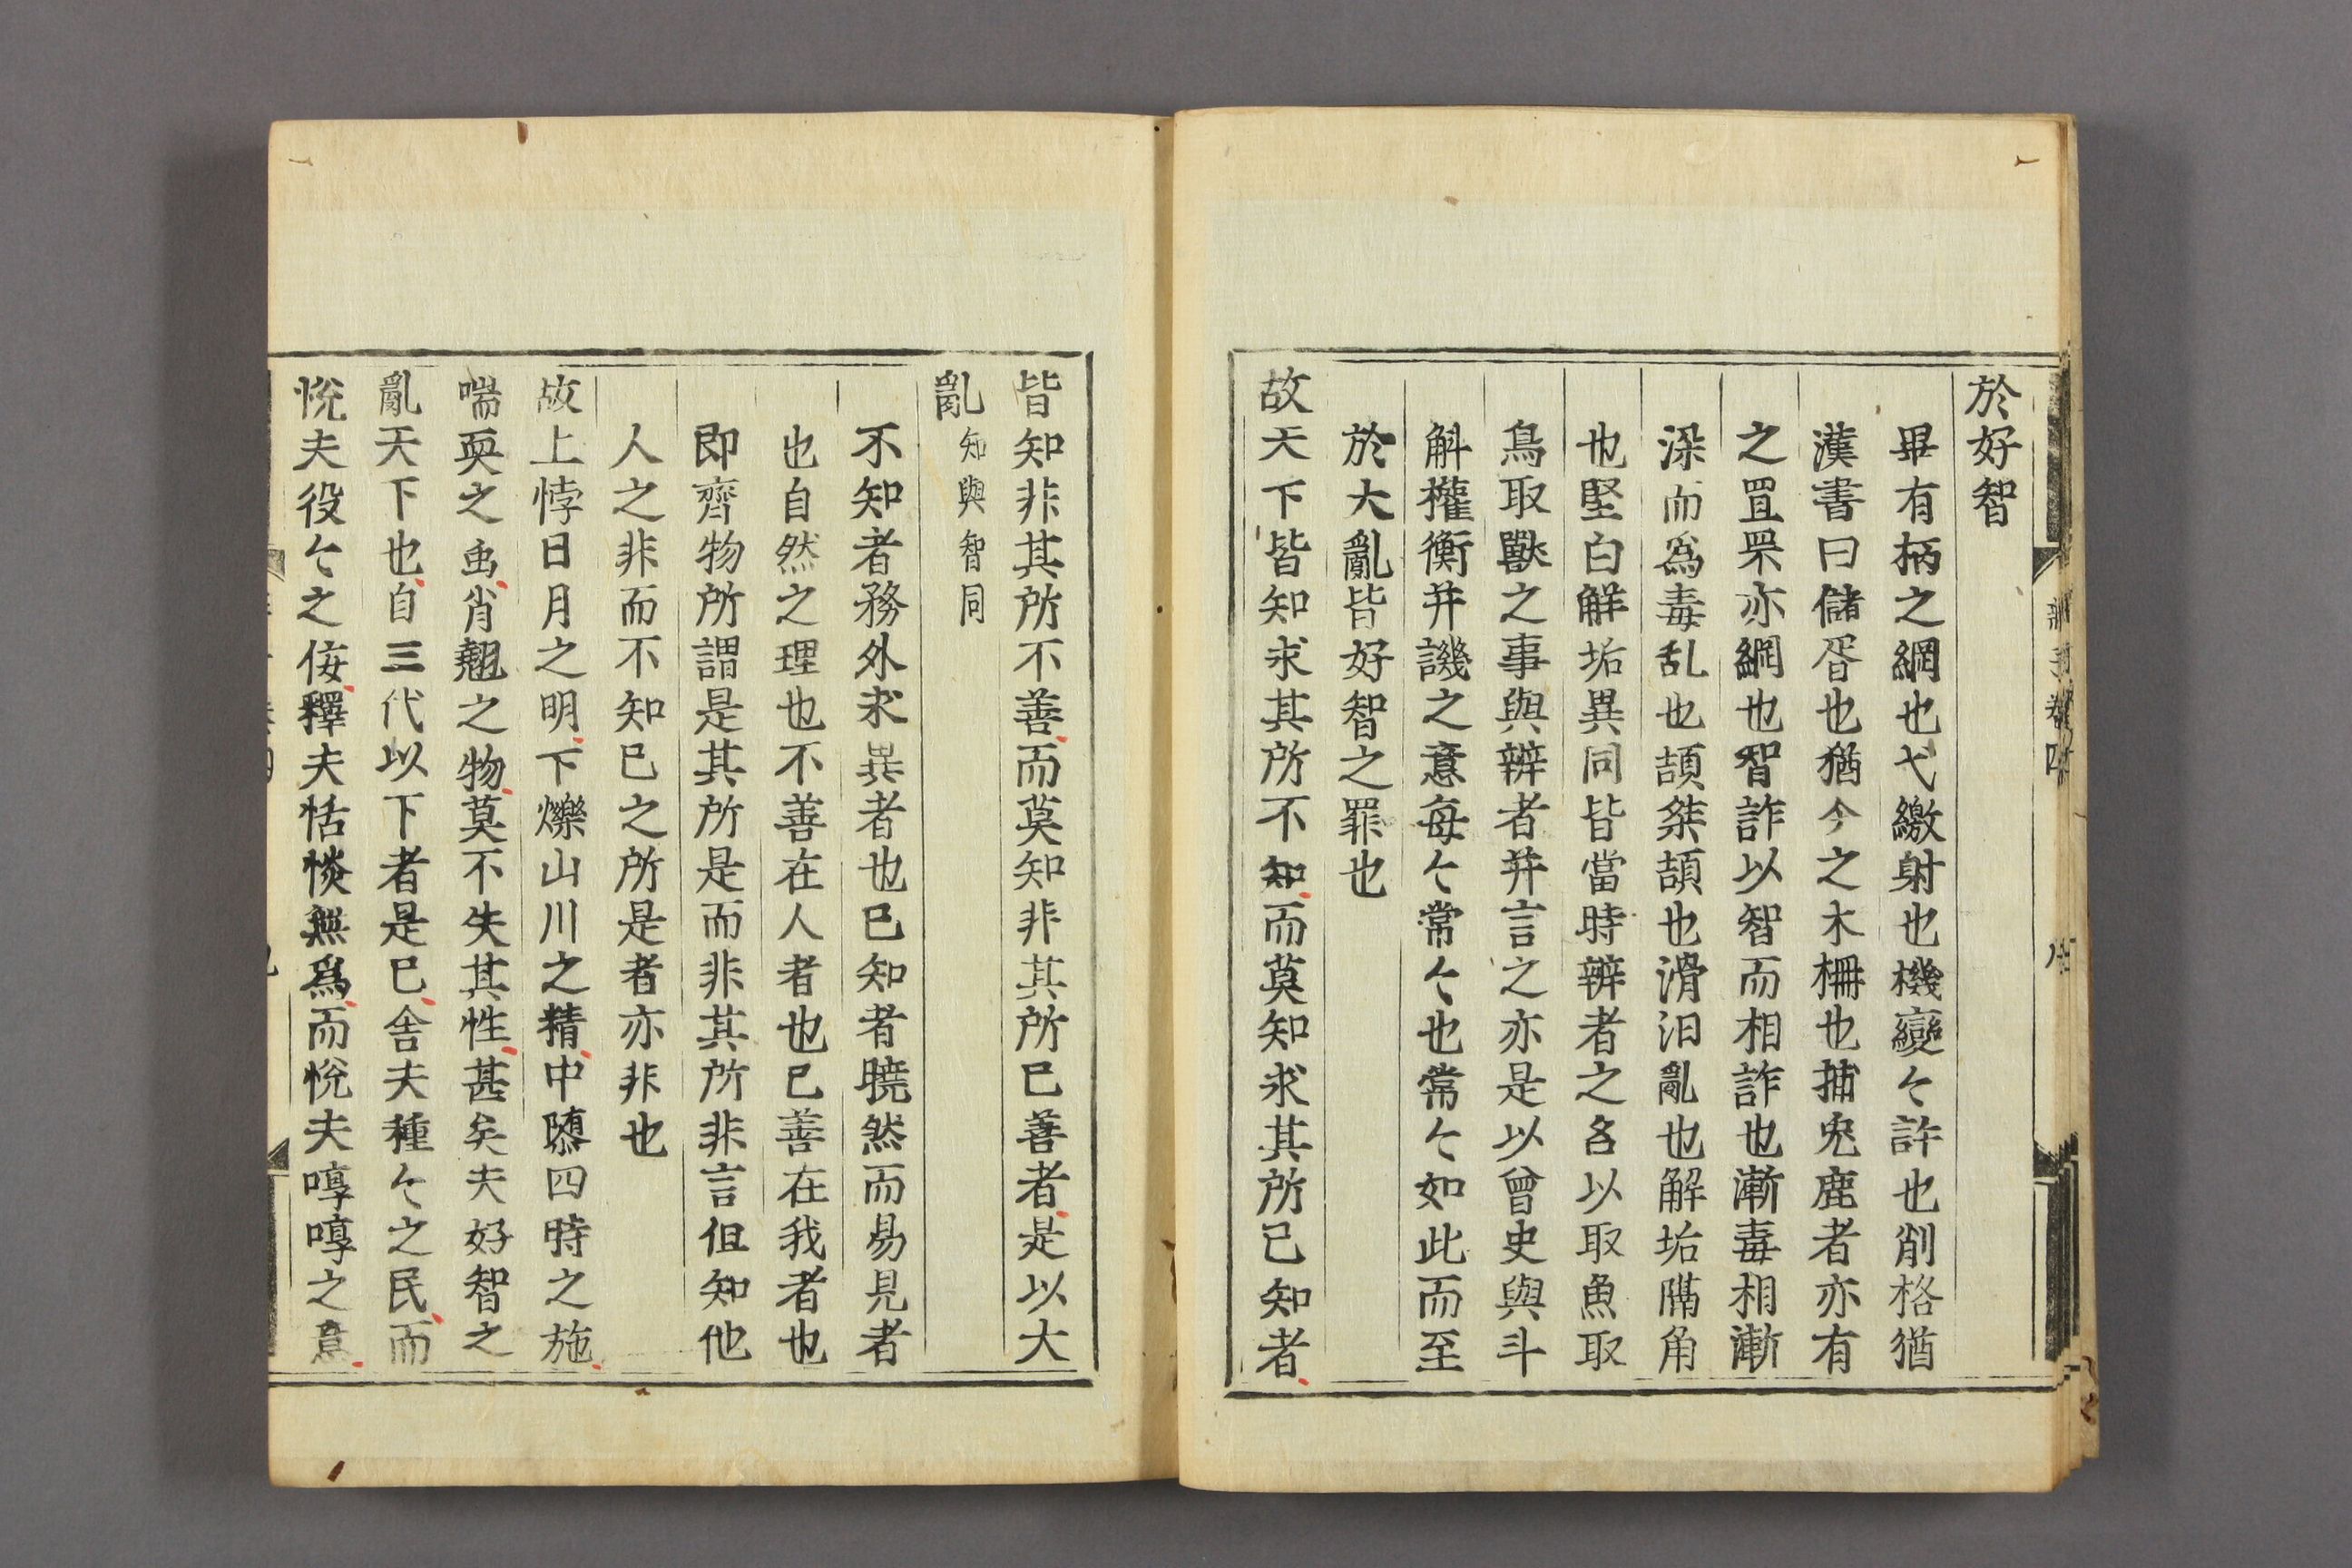 於好智
畢有柄之綱也弋繳射也機變々許也削格猶
漢書曰儲胥也猶今之木柵也捕兎鹿者亦有
之罝罘亦網也智詐以智而相詐也漸毒相漸
深而爲毒乱也頡桀頡也滑汨亂也解垢隔角
也堅白解垢異同皆當時辨者之名以取魚取
鳥取獸之事與辨者并言之亦是以曾史與斗
斛權衡并譏之意每々常々也常々如此而至
於大亂皆好智之罪也
故天下皆知求其所不知而莫知求其所已知者
皆知非其所不善而莫知非其所已善者是以大
亂 知與智同
不知者務外求異者也已知者曉然而易見者
也自然之理也不善在人者也已善在我者也
即齊物所謂是其所是而非其所非言但知他
人之非而不知已之所是者亦非也
故上悖日月之明下爍山川之精中隳四時之施
喘耎之䖝肖翹之物莫不失其性甚矣夫好智之
亂天下也自三代以下者是已舍夫種々之民而
悅夫役々之佞釋夫恬惔無爲而悅夫啍啍之意